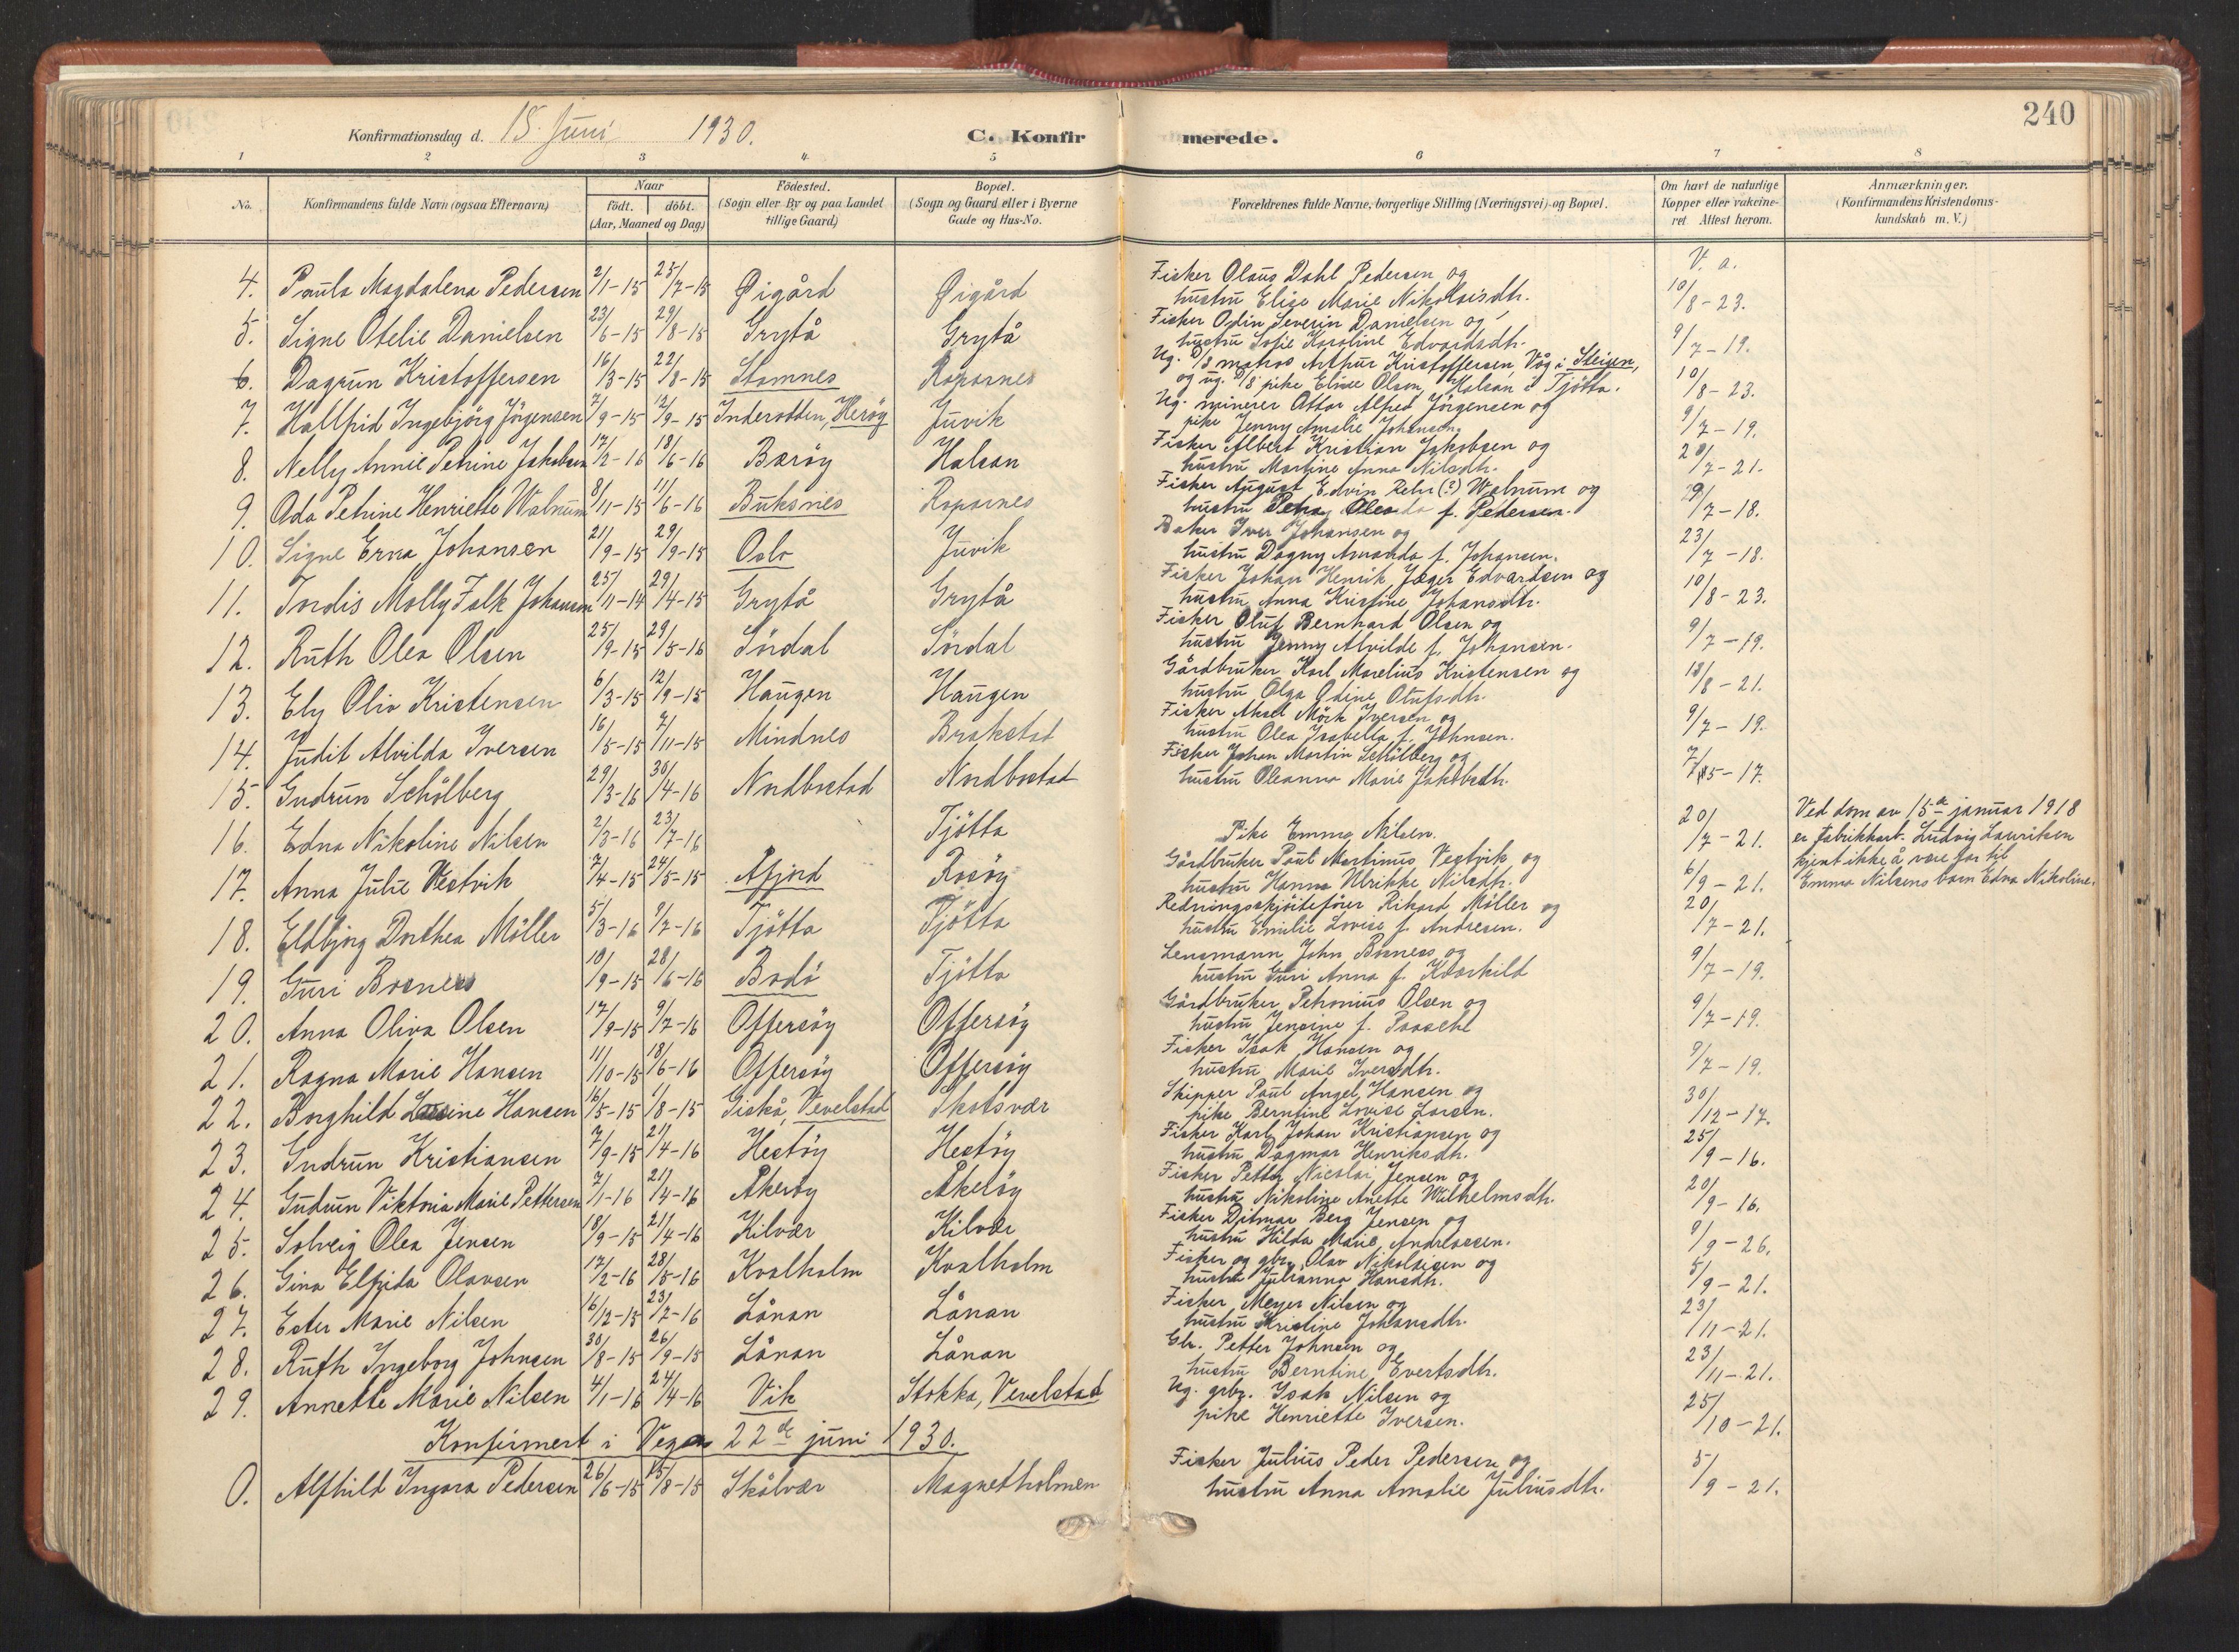 240
Konfirmationsdag d. 15. Juni 1930. C. Konfirmerede.
1 2 3 4 5 6 7 8
No. Konfirmandens fulde Navn (ogsaa Efternavn) Naar födt. döbt. (Aar, Maaned og Dag) Födested. (Sogn eller By og paa Landet tillige Gaard) Bopæl. (Sogn og Gaard eller i Byerne Gade og Hus-No. Forældrenes fulde Navne, borgerlige Stilling (Næringsvei) og Bopæl. Om havt de naturlige Kopper eller vakcineret Attest herom. Anmærkninger. (Konfirmandens Kristendomskundskab m. V.)
V. a.
4. Paula Magdalena Pedersen 2/1-15 25/7-15 Øigård Øigård Fisker Olaus Dahl Pedersen og 10/8-23.
hustru Elise Marie Nikolaisdtr.
5. Signe Otelie Danielsen 23/6-15 29/8-15 Grytå Grytå Fisker Odin Severin Danielsen og 9/7-19.
hustru Sofie Karoline Edvardsdtr.
6. Dagrun Kristoffersen 16/3-15 22/8-15 Stamnes Roparnes Ug. D/S matros Arthur Kristoffersen, Våg i Steigen, 10/8-23.
og ug. D/S pike Elise Olsen, Halsan i Tjötta.
7. Hallfrid Ingebjörg Jörgensen 7/9-15 12/9-15 Inderodden, Heröy Juvik Ug. minerer Ottar Alfred Jörgensen og 9/7-19.
pike Jenny Amalie Johansen
8. Nelly Annie Petrine Jakobsen 17/2-16 18/6-16 Bæröy Halsan Fisker Albert Kristian Jakobsen og 20/7-21.
hustru Martine Anna Nilsdtr.
9. Ada Petrine Henriette Walnum 8/11-15 11/6-16 Buksnes Roparnes Fisker August Edvin Rehr (?) Walnum og 29/7-18.
hustru Petra Oleada f. Pedersen.
10. Signe Erna Johansen 21/9-15 29/9-15 Oslo Juvik Baker Iver Johansen og 23/7-18.
hustru Dagny Amanda f. Johansen.
11. Tordis Molly Falk Johansen 25/11-14 29/4-15 Grytå Grytå Fisker Johan Henrik Jæger Edvardsen og 10/8-23.
hustru Anna Kristine Johansdtr.
12. Ruth Olea Olsen 25/9-15 29/5-16 Sördal Sördal Fisker Oluf Bernhard Olsen og 9/7-19.
hustru Jenny Alvilde f. Johansen.
13. Ely Oliv Kristensen 6/3-15 12/9-15 Haugen Haugen Gårdbruker Karl Marelius Kristensen og 18/8-21.
hustru Olga Odine Olufsdtr.
14. Judit Alvilda Iversen 16/5-15 7/11-15 Mindnes Brakstad Fisker Aksel Mörk Iversen og 9/7-19.
hustru Olea Isabella f. Johnsen.
15. Gudrun Schölberg 29/3-16 30/4-16 Nordbostad Nordbostad Fisker Johan Martin Schölberg og 7/5-17.
hustru Oleanna Marie Jakobsdtr.
16. Edna Nikoline Nilsen 2/3-16 23/7-16 Tjötta Pike Emma Nilsen. 20/7-21. Ved dom av 15de januar 1918
er fabrikkarb. Ludvig Lauritsen
kjent ikke å være far til
Emma Nilsens barn Edna Nikoline.
17. Anna Julie Vestvik 7/4-15 24/5-15 Åfjord Rosöy Gårdbruker Paul Martinus Vestvik og 6/9-21.
hustru Hanna Ulrikke Nilsdtr.
18. Eldbjörg Dorthea Möller 5/3-16 9/7-16 Tjötta Tjötta Redningsskjöitefører Rikard Möller og 20/7-21.
hustru Emilie Lovise f. Andresen.
19. Guri Bosness 10/9-15 28/6-16 Bodö Tjötta Lensmann John Bosness og 9/7-19.
hustru Guri Anna f. Kværkild
20. Anna Oliva Olsen 17/9-15 9/7-16 Offersöy Offersöy Gårdbruker Petronius Olsen og 9/7-19.
hustru Jensine f. Paasche
21. Ragna Marie Hansen 11/10-15 18/6-16 Offersöy Offersöy Fisker Isak Hansen og 9/7-19.
hustru Marie Iversdtr.
22. Borghild Hansen 16/5-15 1/8-15 Giskå, Vevelstad Skotsvær Skipper Paul Angel Hansen og 30/12-17.
pike Berntine Lovise Larsen.
23. Gudrun Kristiansen 7/9-15 21/4-16 Hestöy Hestöy Fisker Karl Johan Kristiansen og 25/9-16.
hustru Dagmar Henriksdtr.
24. Gudrun Viktoria Marie Pettersen 7/1-16 21/4-16 Åkeröy Åkeröy Fisker Petter Nicolai Jensen og 20/9-16.
hustru Nikoline Anette Wilhelmsdtr.
25. Solveig Olea Jensen 18/9-15 21/4-16 Kilvær Kilvær Fisker Ditmar Berg Jensen og 9/9-26.
hustru Hilda Marie Andreassen.
26. Gina Elfrida Olavsen 17/2-16 28/5-16 Kvalholm Kvalholm Fisker og gbr. Olav Nikolaisen og 5/9-21.
hustru Julianna Hansdtr.
27. Ester Marie Nilsen 16/12-15 23/7-16 Lånan Lånan Fisker Meyer Nilsen og 23/11-21.
hustru Kristine Johansdtr.
28. Ruth Ingeborg Johnsen 30/8-15 26/9-15 Lånan Lånan Gbr. Petter Johnsen og 23/11-21.
hustru Berntine Evertsdtr.
29. Annette Marie Nilsen 4/1-16 24/4-16 Vik Stokka, Vevelstad Ug. grbr. Isak Nilsen og 25/10-21.
pike Henriette Iversen.
Konfirmert i Vega 22de juni 1930.
0. Alfhild Ingara Pedersen 26/6-15 15/8-15 Skålvær Magnetholmen Fisker Julius Peder Pedersen og 5/9-21.
hustru Anna Amalie Juliusdtr.